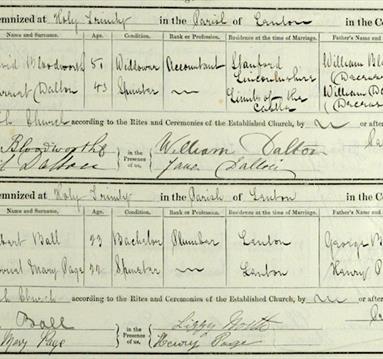 emnized at Holy Trinity in the Parish of Lenton in the C
Name and Surname. Age. Condition. Rank or Profession. Residence at the time of Marriage. Father's Name and
vid Bloodworth 51 Widower Accountant Stamford Lincolnshire William Bl
Dalton 43 Spinster Limits of the Castle William D
Church according to the Rites and Ceremonies of the Established Church, by or after
Bloodworth in the Presence of us, William Dalton
Dalton Jane Dalton
emnized at Holy Trinity in the Parish of Lenton in the C
Name and Surname. Age. Condition. Rank or Profession. Residence at the time of Marriage. Father's Name and
bert Ball 23 Bachelor Plumber Lenton George B
Mary Page 22 Spinster Lenton Henry P
Church according to the Rites and Ceremonies of the Established Church, by or after
Ball in the Presence of us, Lizzy
Mary Page Henry Page